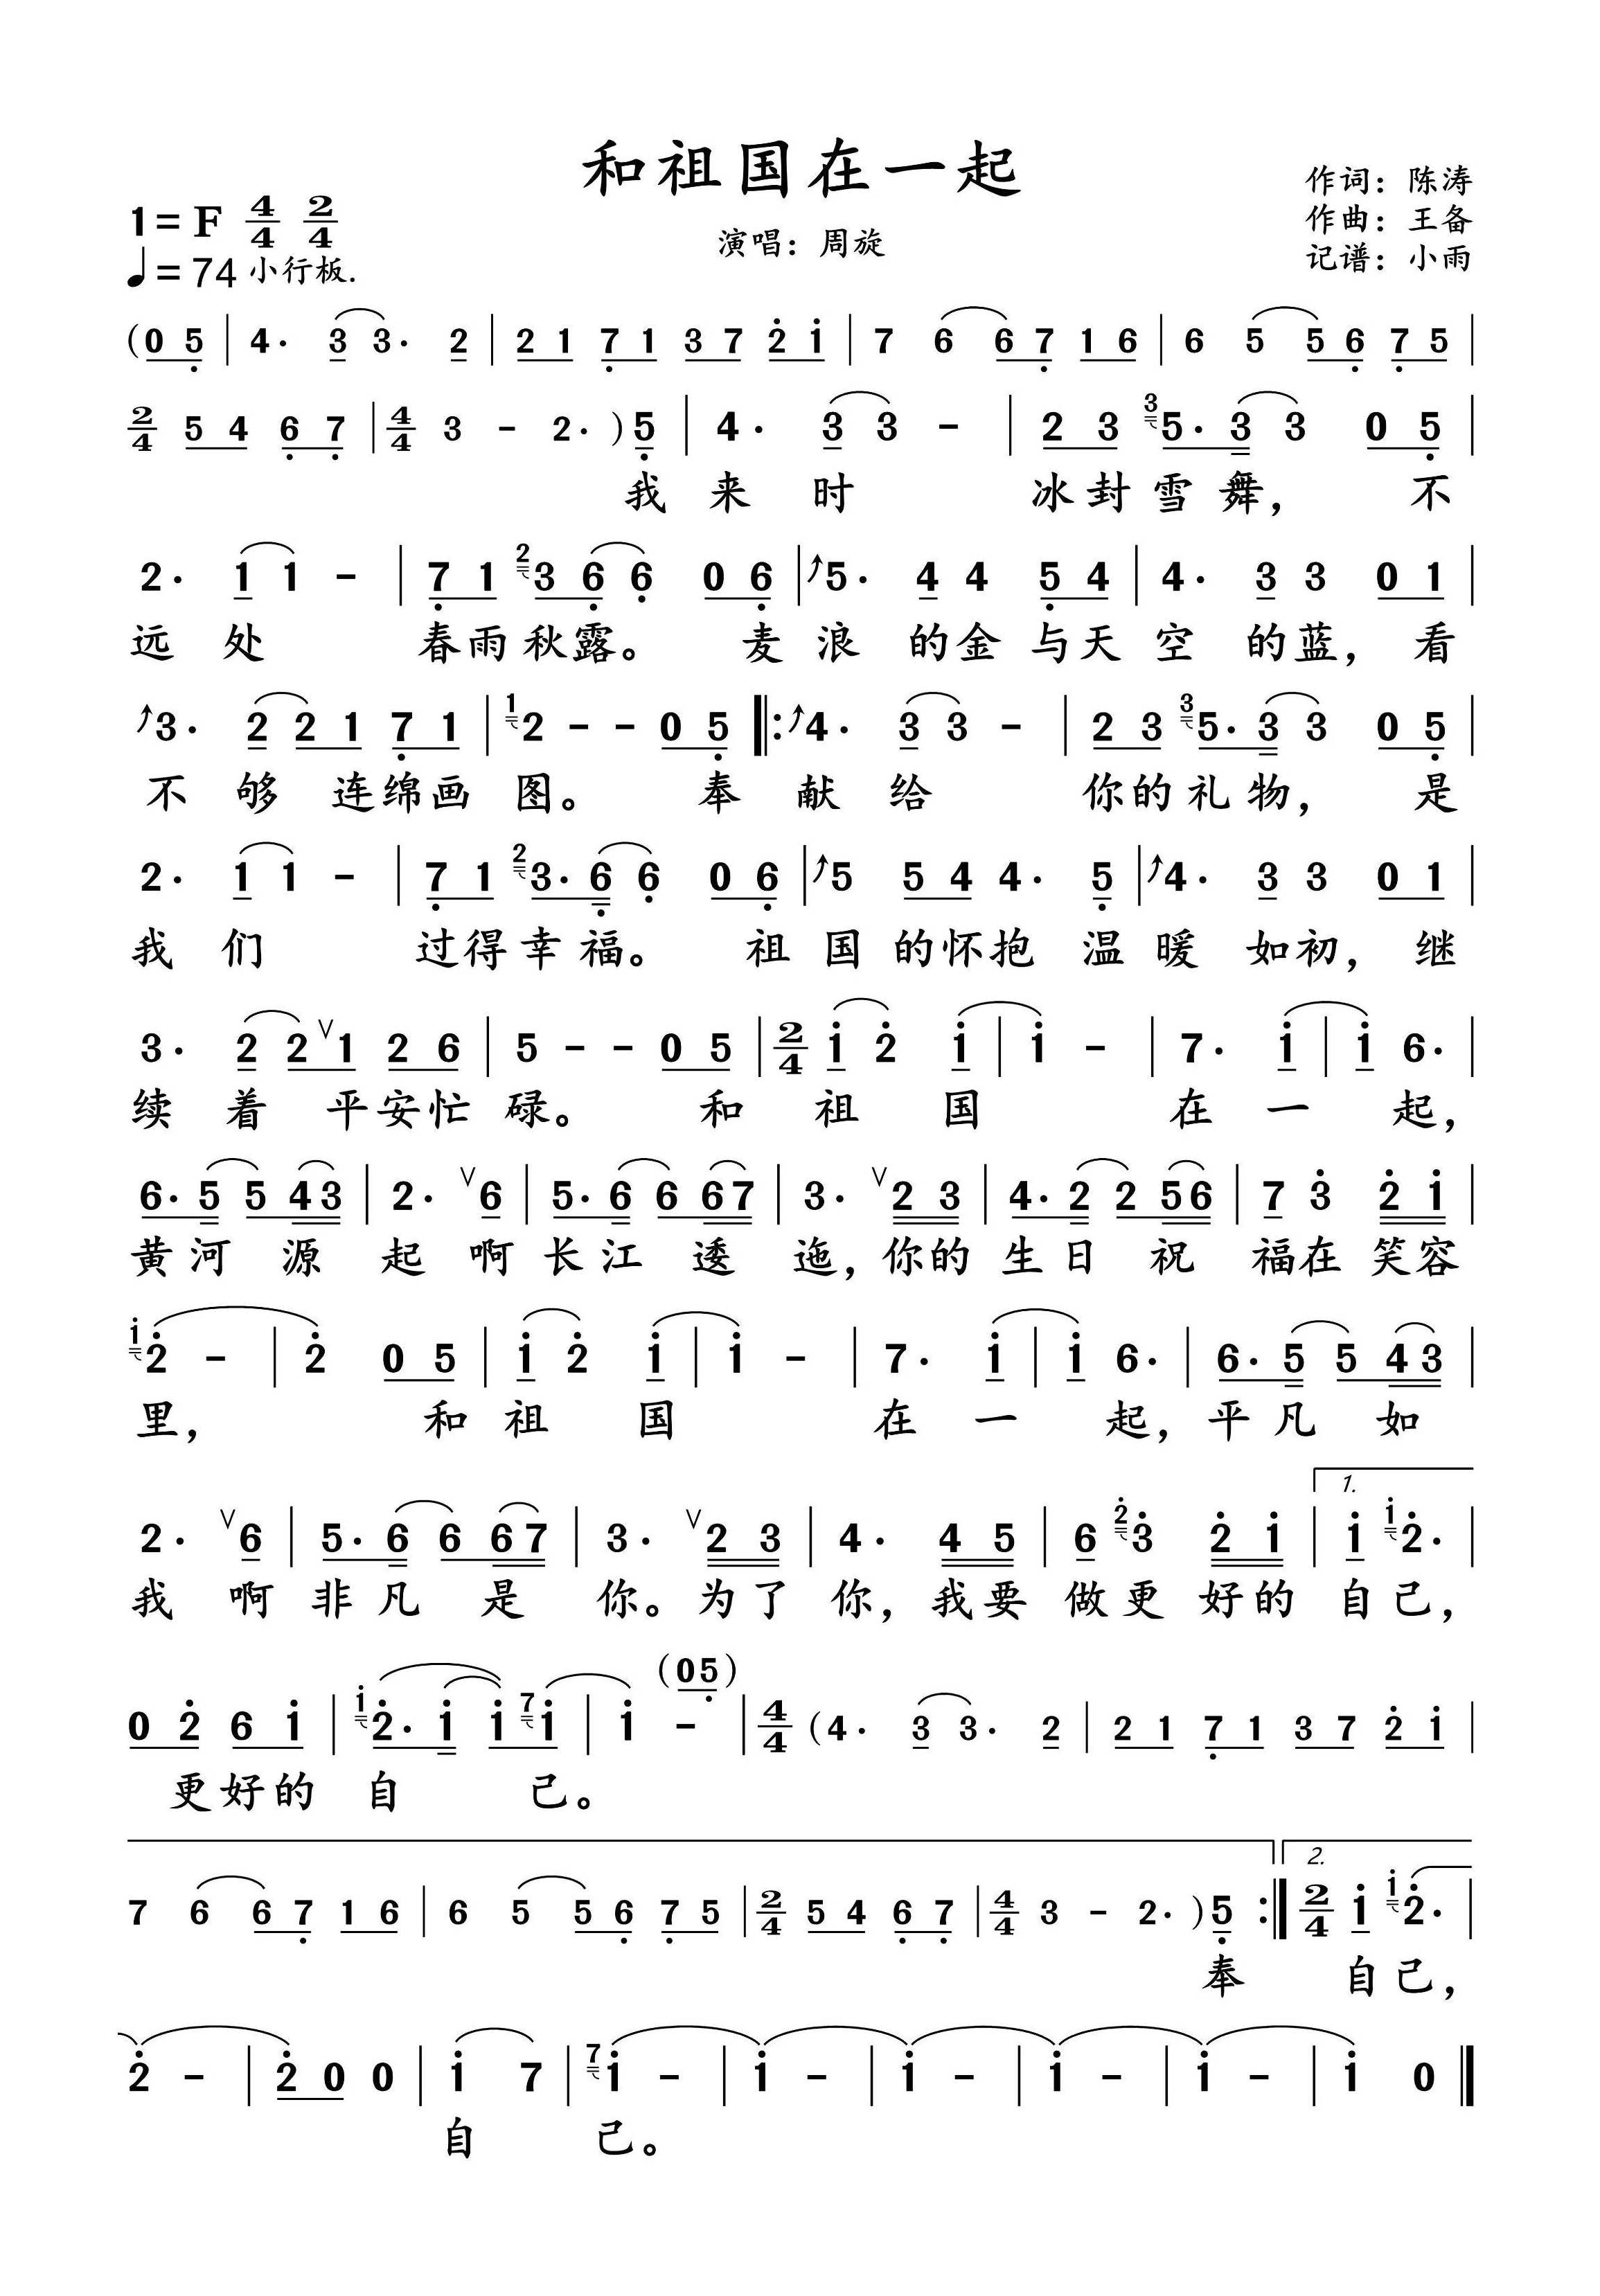 和祖国在一起
作词：陈涛
1=F 4/4 2/4
演唱：周旋
作曲：王备
♩=74 小行板.
记谱：小雨
(0 5 | 4· 3 3· 2 | 2 1 7 1 3 7 2 1 | 7 6 6 7 1 6 | 6 5 5 6 7 5 |
2/4 5 4 6 7 | 4/4 3 - 2· ) 5 | 4· 3 3 - | 2 3 3 5· 3 3 0 5 |
我来时 冰封雪舞， 不
2· 1 1 - | 7 1 2 3 6 6 0 6 | 5· 4 4 5 4 | 4· 3 3 0 1 |
远处 春雨秋露。 麦浪的金与天空的蓝，看
3· 2 2 1 7 1 | 1 2 - - 0 5 |: 4· 3 3 - | 2 3 3 5· 3 3 0 5 |
不够连绵画图。 奉献给 你的礼物， 是
2· 1 1 - | 7 1 2 3· 6 6 0 6 | 5 5 4 4· 5 | 4· 3 3 0 1 |
我们 过得幸福。 祖国的怀抱温暖如初，继
3· 2 2 ∨ 1 2 6 | 5 - - 0 5 | 2/4 1 2 1 | 1 - | 7· 1 | 1 6· |
续着平安忙碌。 和祖国 在一起，
6· 5 5 4 3 | 2· ∨ 6 | 5· 6 6 6 7 | 3· ∨ 2 3 | 4· 2 2 5 6 | 7 3 2 1 |
黄河源起啊长江逶迤，你的生日祝福在笑容
1 2 - | 2 0 5 | 1 2 1 | 1 - | 7· 1 | 1 6· | 6· 5 5 4 3 |
里， 和祖国 在一起，平凡如
1.
2· ∨ 6 | 5· 6 6 6 7 | 3· ∨ 2 3 | 4· 4 5 | 6 2 3 2 1 | 1 1 2· |
我啊非凡是你。为了你，我要做更好的自己，
(0 5)
0 2 6 1 | 1 2· 1 1 7 1 | 1 - | 4/4 (4· 3 3· 2 | 2 1 7 1 3 7 2 1 |
更好的自己。
2.
7 6 6 7 1 6 | 6 5 5 6 7 5 | 2/4 5 4 6 7 | 4/4 3 - 2· ) 5 :| 2/4 1 1 2· |
奉 自己，
2 - | 2 0 0 | 1 7 | 7 1 - | 1 - | 1 - | 1 - | 1 - | 1 0 ‖
自己。